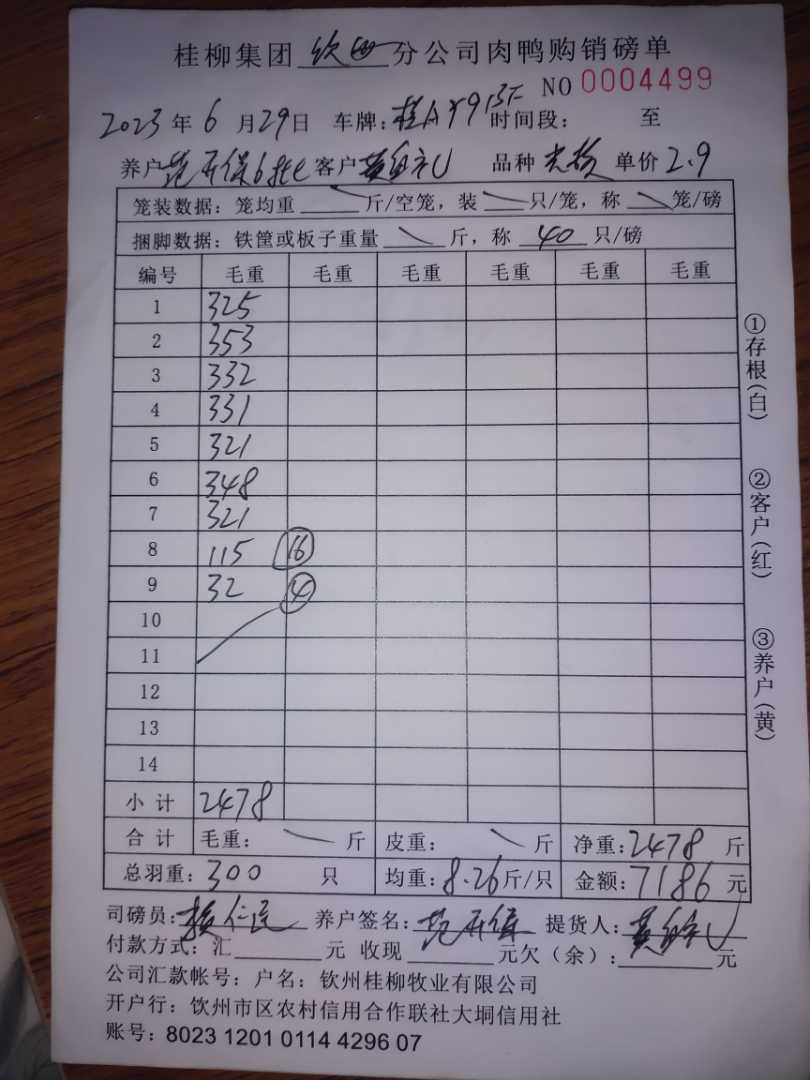 桂柳集团 钦州 分公司肉鸭购销磅单
NO 0004499
2023 年 6 月 29 日 车牌: 桂A 时间段: 至
养户 6批 客户 品种 单价 2.9
笼装数据: 笼均重 斤/空笼, 装 只/笼, 称 笼/磅
捆脚数据: 铁筐或板子重量 斤, 称 40 只/磅
编号 毛重 毛重 毛重 毛重 毛重 毛重
1 325
2 353
3 332
4 331
5 321
6 348
7 321
8 115 16
9 32 4
10
11
12
13
14
小 计 2478
合 计 毛重: 斤 皮重: 斤 净重: 2478 斤
总羽重: 300 只 均重: 8.26 斤/只 金额: 7186 元
司磅员: 养户签名: 提货人:
付款方式: 汇 元 收现 元欠 (余): 元
公司汇款帐号: 户名: 钦州桂柳牧业有限公司
开户行: 饮州市区农村信用合作联社大垌信用社
账号: 8023 1201 0114 4296 07
①存根(白)
②客户(红)
③养户(黄)